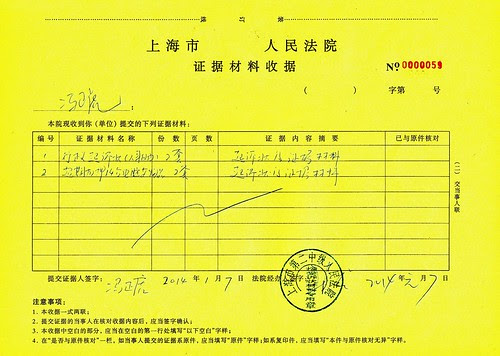 上海市 人民法院
证据材料收据
№ 0000059
( ) 字第 号
冯正虎:
本院现收到你(单位)提交的下列证据材料:
编号 证据材料名称 份数 页数 证据内容摘要 已与原件核对
1 行政起诉状 2套 起诉状及证据材料
2 2套 起诉状及证据材料
(二)交当事人联
提交证据人签字: 冯正虎 2014年1月7日 法院经办 2014年元月7日
上海市第二中级人民法院
专用章
注意事项:
1. 本收据一式两联:
2. 提交证据的当事人在核对收据内容后,应当签字确认;
3. 本收据中空白的部分,应当在空白的第一行处填写"以下空白"字样;
4. 在"是否与原件核对"一栏,如当事人提交的证据系原件,应当填写"原件"字样;如系复印件,应当填写"本件与原件核对无异"字样。